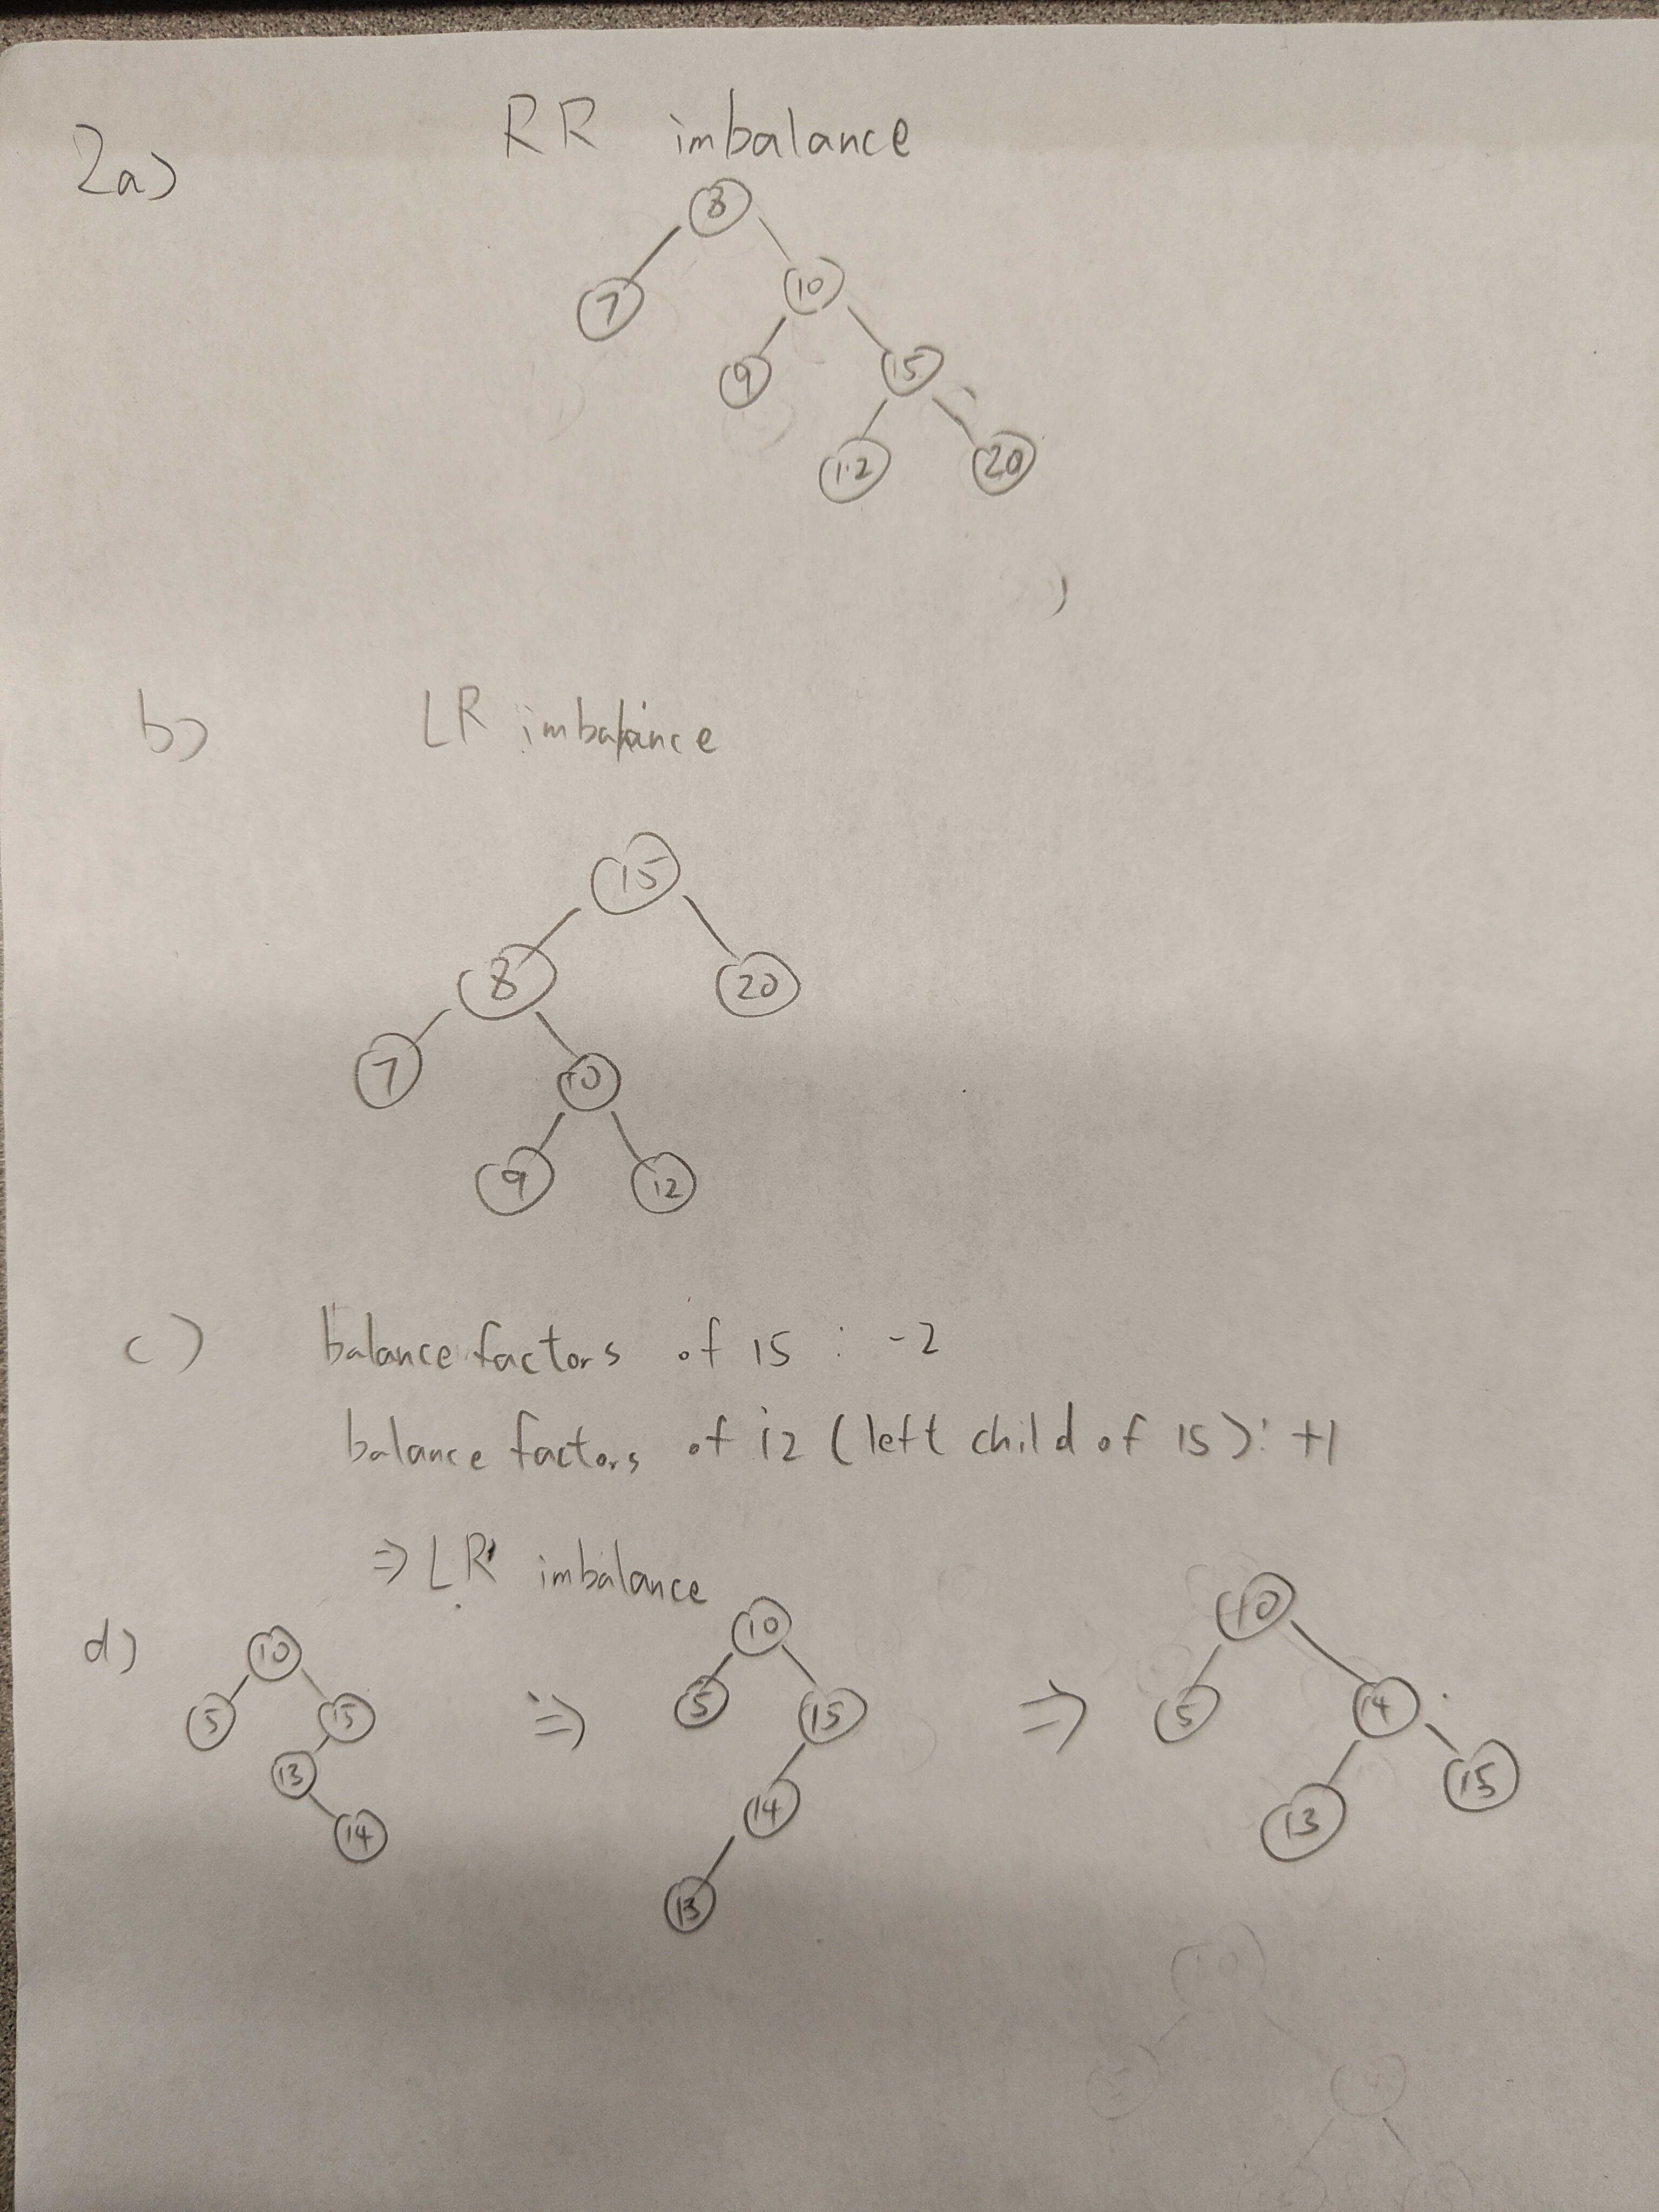 2a) RR imbalance
8
7 10
9 15
12 20
b) LR imbalance
15
8 20
7 10
9 12
c) balance factors of 15 : -2
balance factors of 12 (left child of 15): +1
⇒ LR imbalance
d) 10 ⇒ 10 ⇒ 10
5 15 5 15 5 14
13 14 13 15
14 13